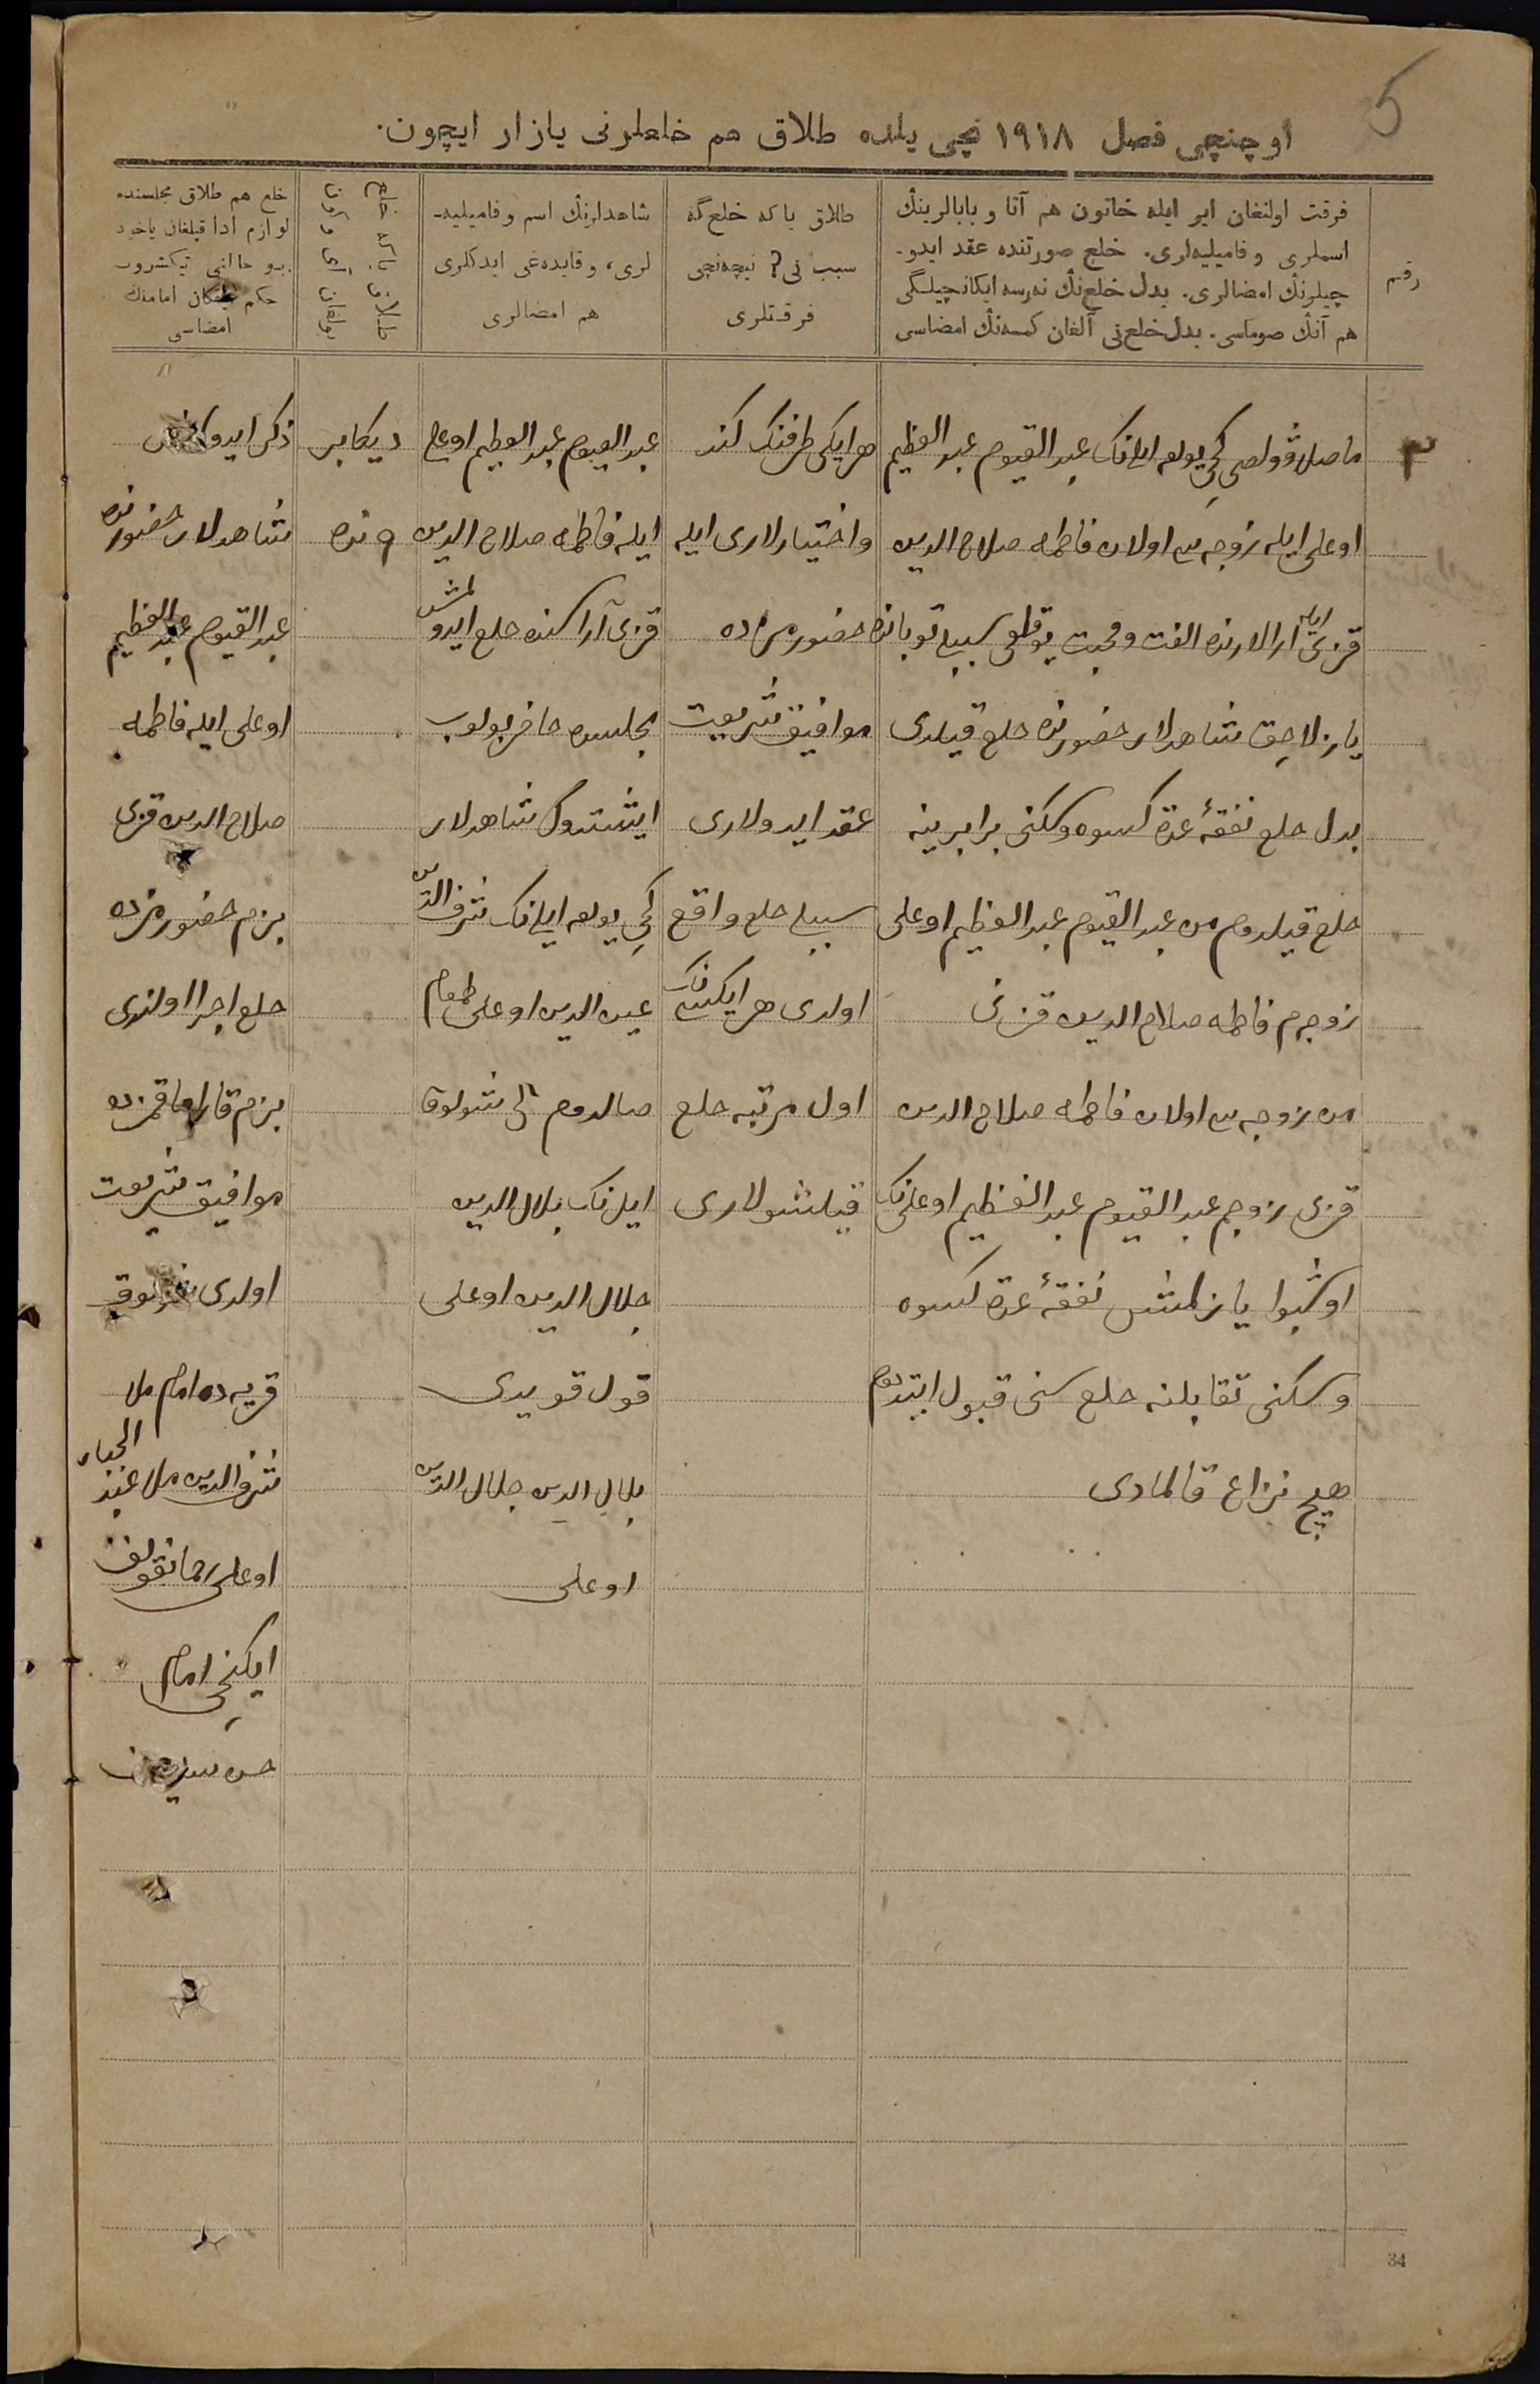 5
اوچنچی فصل ١٩١٨ نچی یلده طلاق هم خلعلرنی یازار ایچون.
رقم
فرقت اولنغان ایر ایله خاتون هم آتا و بابالرینڭ
اسملری و فامیلیه‌لری. خلع صورتنده عقد ایدو-
چیلرنڭ امضالری. بدل خلع‌نڭ نه‌رسه ایکانچیلگی
هم آنڭ صوماسی. بدل خلع‌نی آلغان کمسه‌نڭ امضاسی
طلاق یا که خلع گه
سبب نی؟ نیچه‌نچی
فرقتلری
شاهدلرنڭ اسم و فامیلیه-
لری، و قایده‌غی ایدکلری
هم امضالری
طلاق یا که خلع
خلع هم طلاق مجلسنده
لوازم ادا قیلغان یاخود
بو حالنی تیکشروب
حکم قیلغان امامنڭ
امضاسی
٣
عبد القیوم عبد العظیم
اوغلی ایله زوجه سی اولان فاطمه صلاح الدین
قزی ایله آرالارنده الفت و محبت یوقلقی سببلی توبانده
یازلاجق شاهدلار حضورنده خلع قیلدی
بدل خلع نفقهٔ عدة کسوه و سکنی برابرینه
خلع قیلدوم من عبد القیوم عبد العظیم اوغلی
زوجه‌م فاطمه صلاح الدین قزنی
من زوجه سی اولان فاطمه صلاح الدین
قزی زوجم عبد القیوم عبد العظیم اوغلی‌نک
اوشبو یازلمش نفقهٔ عدة کسوه
و سکنی تقابلنه خلع سنی قبول ایتدوم
هیچ نزاع قالمادی
هر ایکی طرفنک کند
و اختیارلاری ایله
حضورمزده
موافیق شریعت
عقد ایدولاری
سببلی خلع واقع
اولدی هر ایکسی‌نک
اول مرتبه خلع
قیلشولاری
عبد القیوم عبد العظیم اوغلی
ایله فاطمه صلاح الدین
قزی آراسنده خلع ایدولمش
مجلسده حاضر بولوب
ایشتدوک شاهدلار
شرف الدین
عین الدین اوغلی
بلال الدین
جلال الدین اوغلی
قول قویدی
بلال الدین جلال الدین
اوغلی
دیکابر
٩ نده
ذکر ایدولمش
شاهدلار حضورنده
عبد القیوم عبد العظیم
اوغلی ایله فاطمه
صلاح الدین قزی
بزم حضورمزده
خلع اجرا اولندی
موافیق شریعت
اولدی
قریه ده امام ملا
شرف الدین ملا عبد الجبار
اوغلی رحمانقولف
ایکنچی امام
34